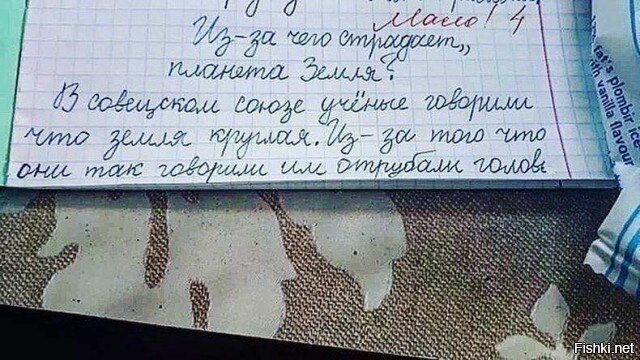 Мало! 4
Из-за чего страдает,,
планета Земля?
В совецском союзе учёные говорили
что земля круглая. Из-за того что
они так говорили им отрубали головы
at's plombir ice
with vanilla flavour
Fishki.net